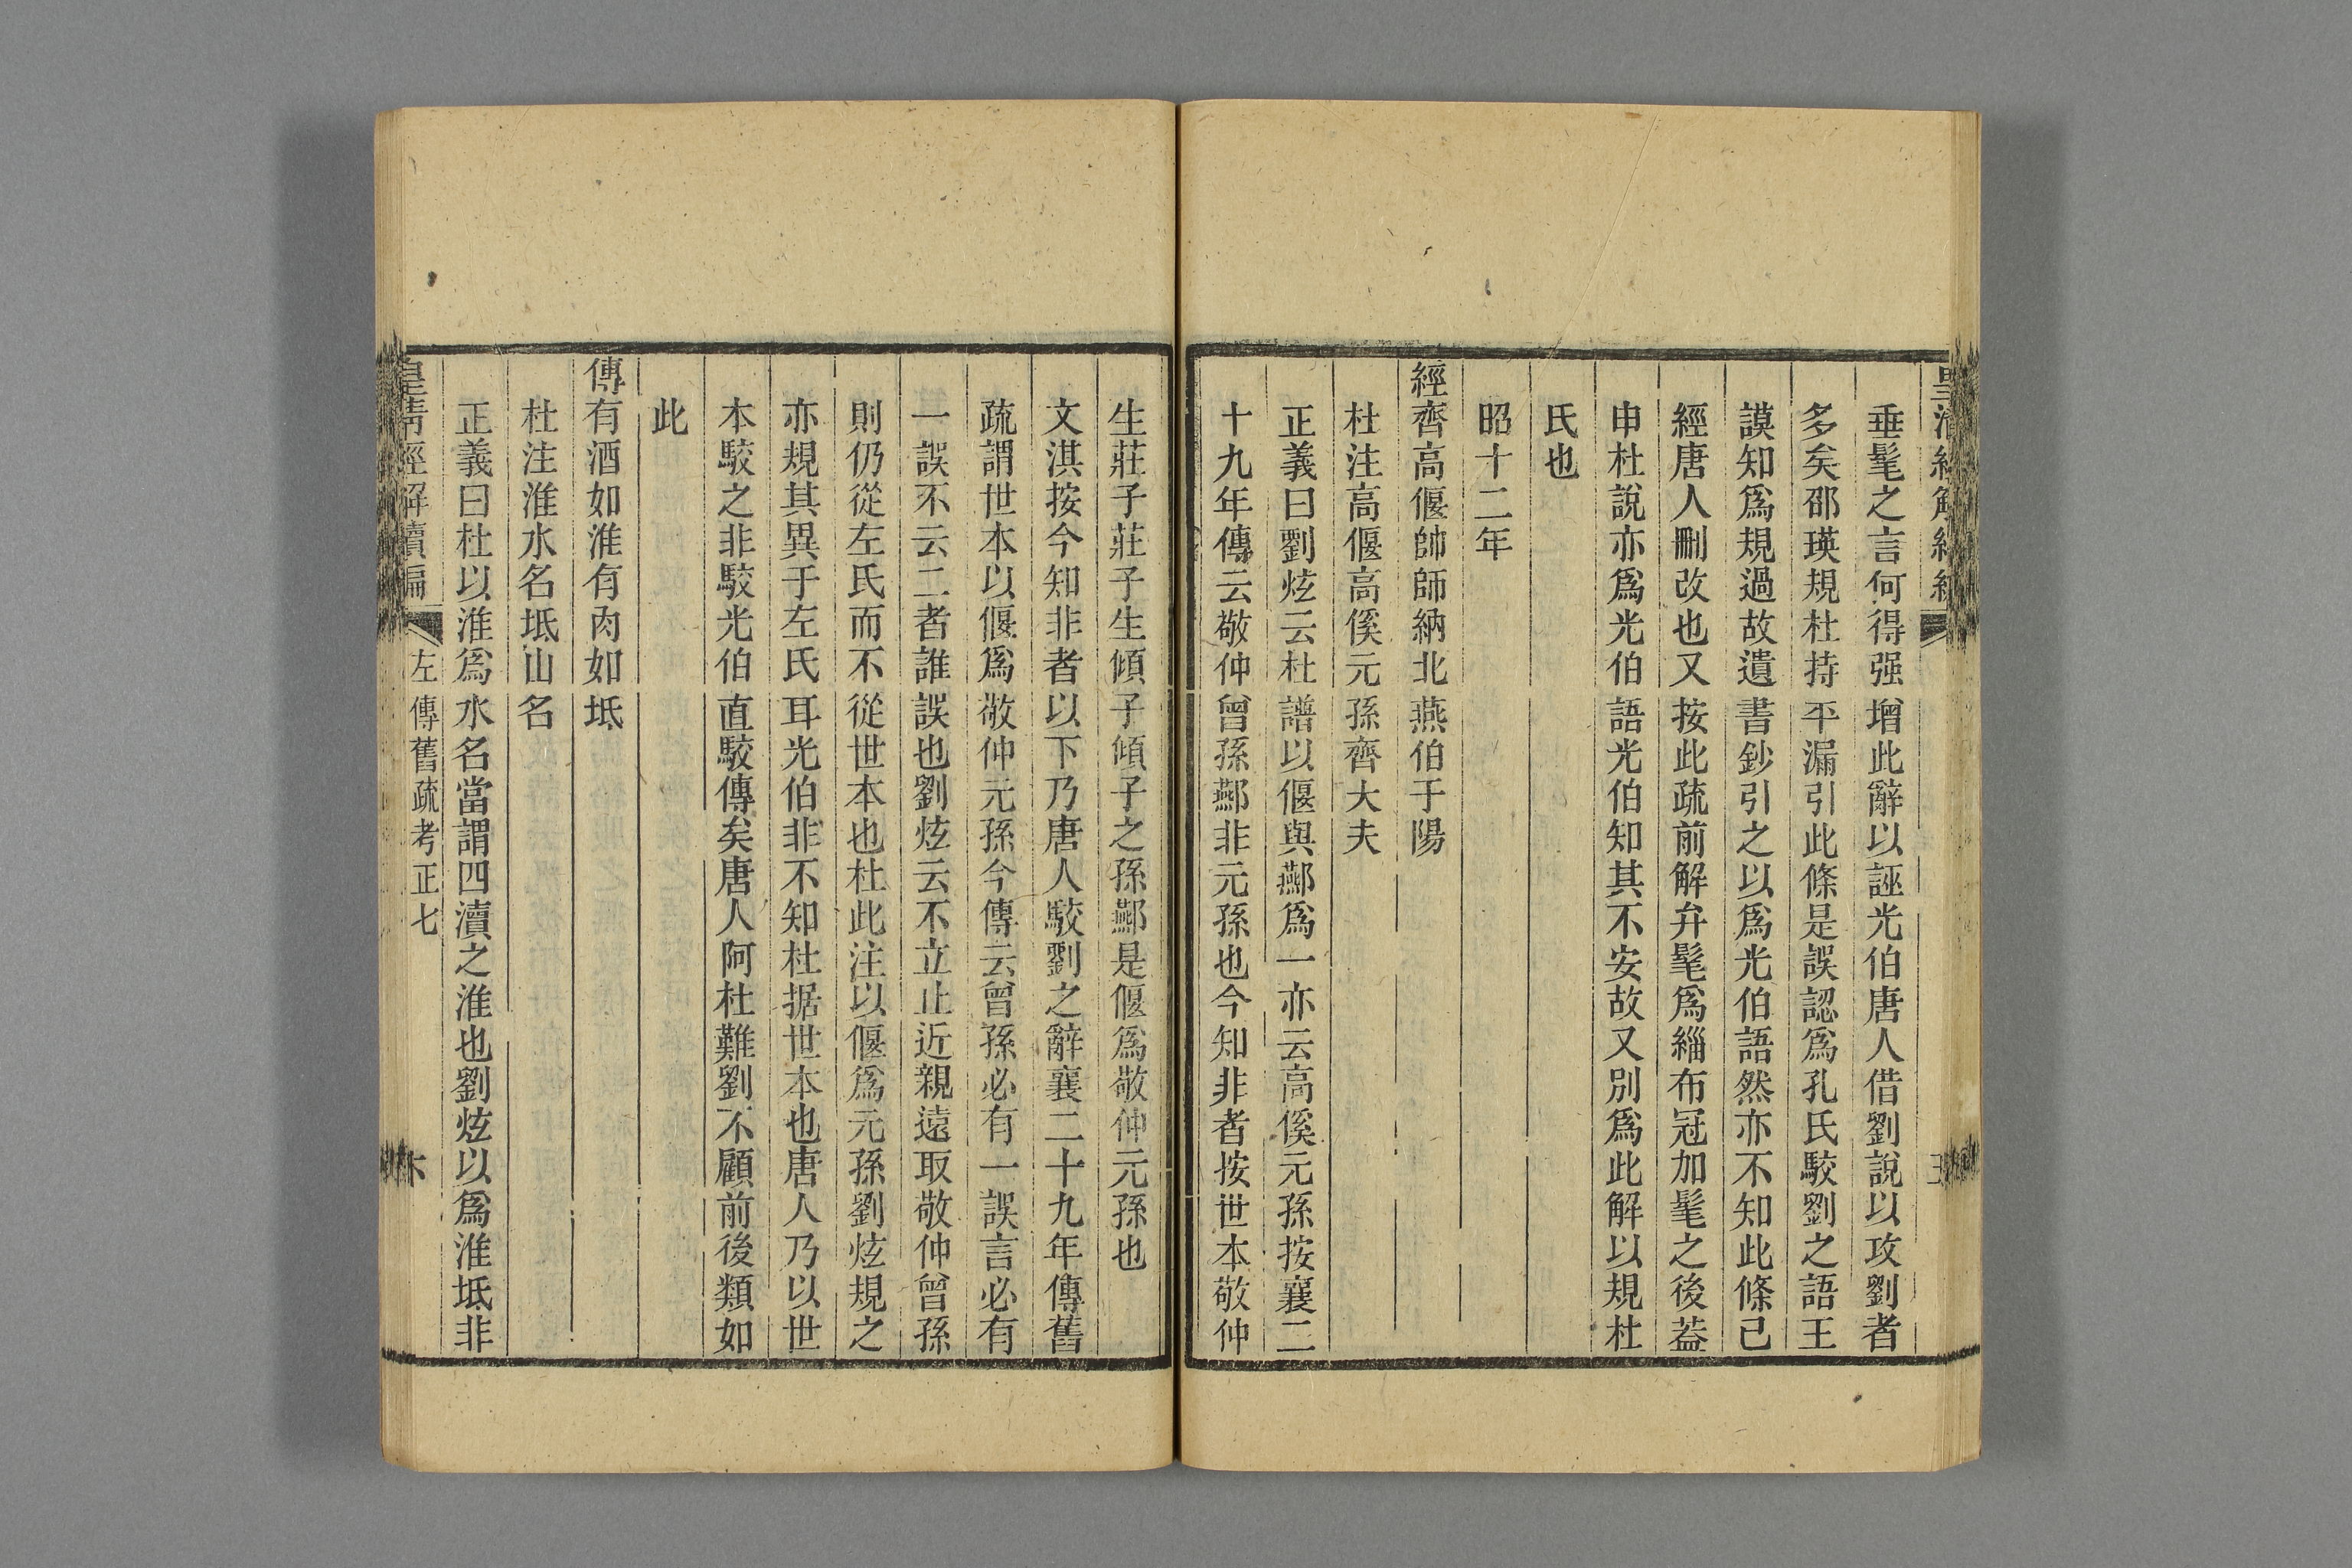 垂髦之言何得强增此辭以誣光伯唐人借劉說以攻劉者
多矣邵瑛規杜持平漏引此條是誤認爲孔氏駮劉之語王
謨知爲規過故遺書鈔引之以爲光伯語然亦不知此條已
經唐人刪改也又按此疏前解弁髦爲緇布冠加髦之後葢
申杜說亦爲光伯語光伯知其不安故又別爲此解以規杜
氏也
昭十二年
經齊高偃帥師納北燕伯于陽
杜注高偃高傒元孫齊大夫
正義曰劉炫云杜譜以偃與酀爲一亦云高傒元孫按襄二
十九年傳云敬仲曾孫酀非元孫也今知非者按世本敬仲
生莊子莊子生傾子傾子之孫酀是偃爲敬仲元孫也
文淇按今知非者以下乃唐人駮劉之辭襄二十九年傳舊
疏謂世本以偃爲敬仲元孫今傳云曾孫必有一誤言必有
一誤不云二者誰誤也劉炫云不立止近親遠取敬仲曾孫
則仍從左氏而不從世本也杜此注以偃爲元孫劉炫規之
亦規其異于左氏耳光伯非不知杜据世本也唐人乃以世
本駮之非駮光伯直駮傳矣唐人阿杜難劉不顧前後類如
此
傳有酒如淮有肉如坻
杜注淮水名坻山名
正義曰杜以淮爲水名當謂四瀆之淮也劉炫以爲淮坻非
皇清經解續編
左傳舊疏考正七